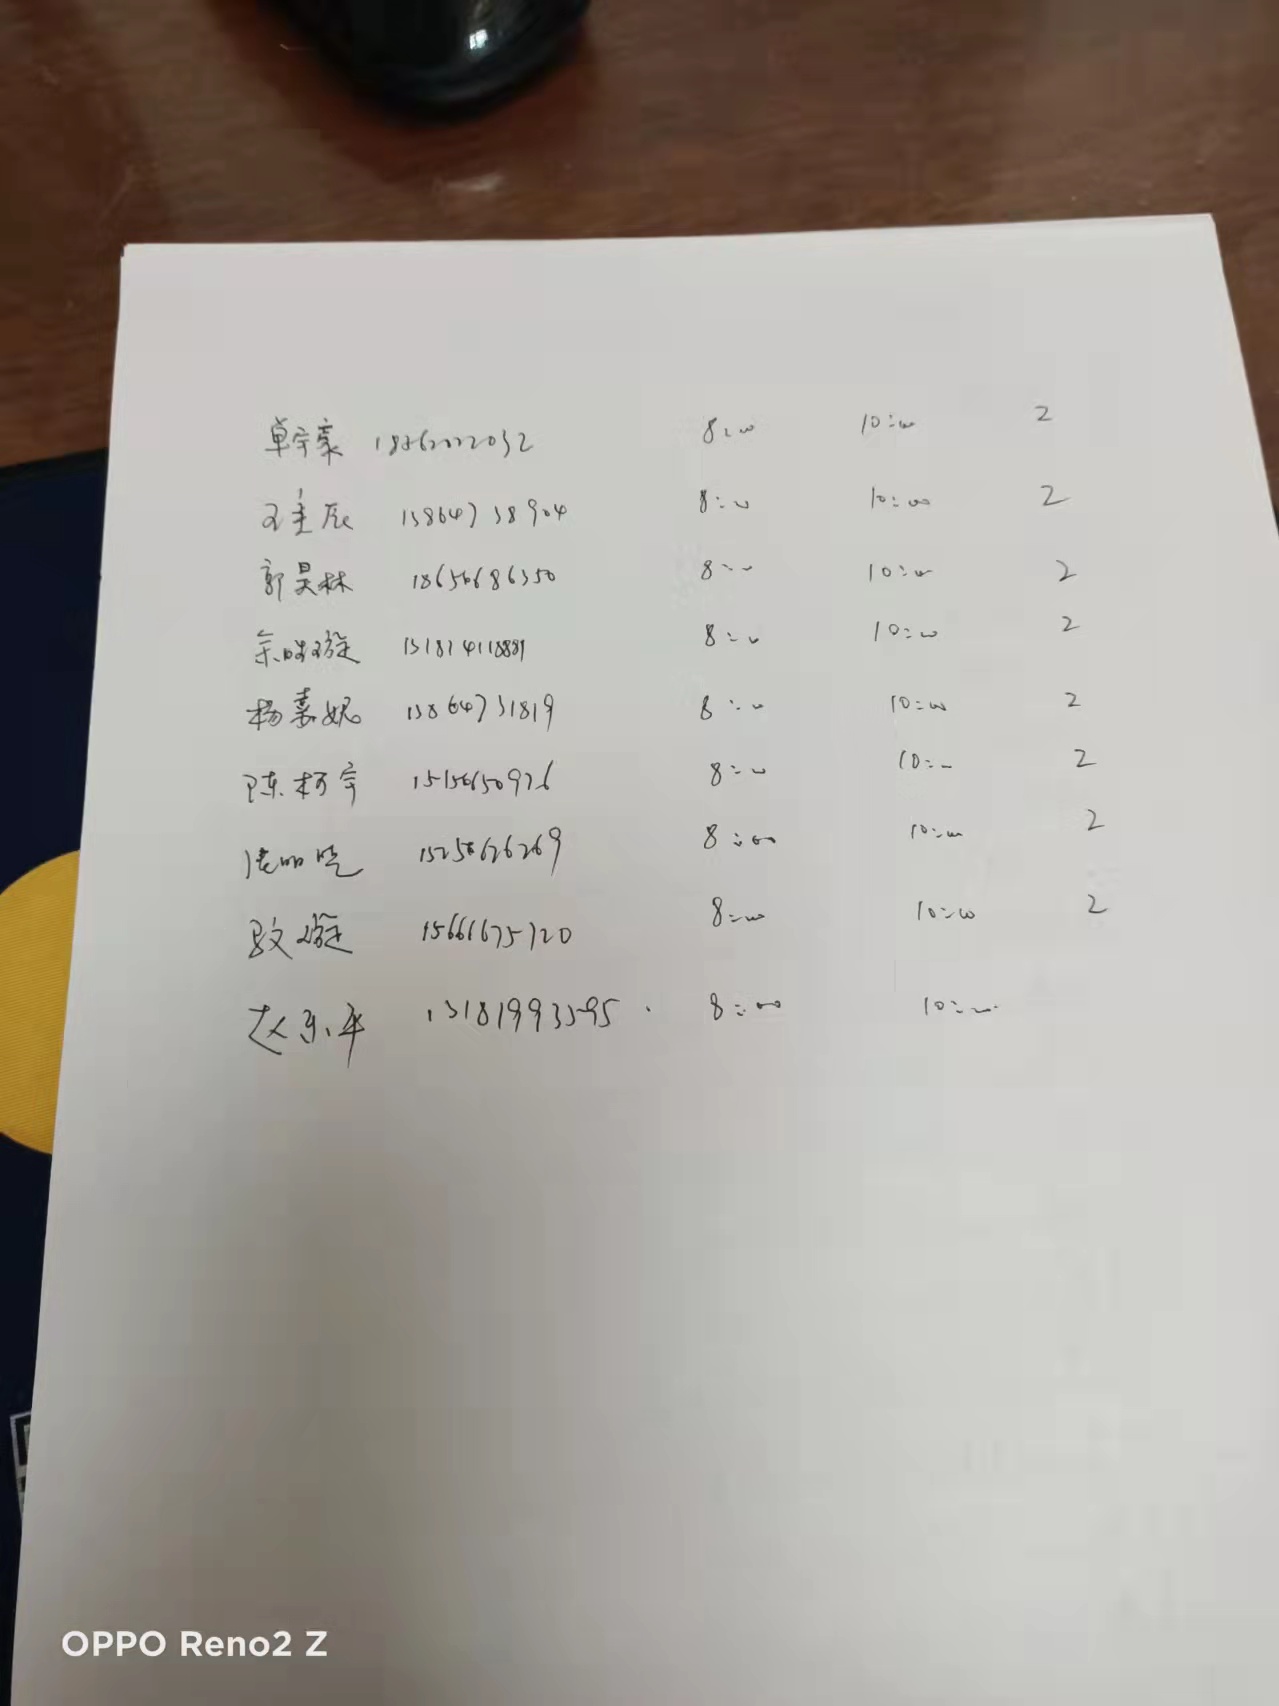 卓宇豪 18262222032 8:00 10:00 2
王圭辰 13864738904 8:00 10:00 2
郭昊林 18656686350 8:00 10:00 2
8:00 10:00 2
杨嘉妮 13864731819 8:00 10:00 2
陈柯宇 15156650926 8:00 10:00 2
15256626269 8:00 10:00 2
璇 15661675720 8:00 10:00 2
赵乐平 13181993595 8:00 10:00
OPPO Reno2 Z